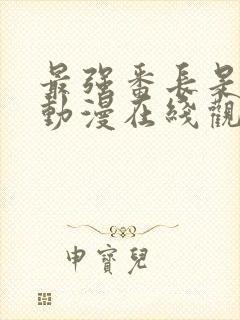 最強番長是
動漫在綫觀
申寶兒